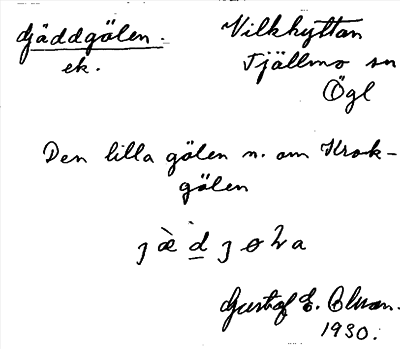 Gäddgölen.
ek.
Vilkhyttan
Tjällmo sn
Ögl
Den lilla gölen n. om Krok-
gölen
Gustaf E. Olsson.
1930.